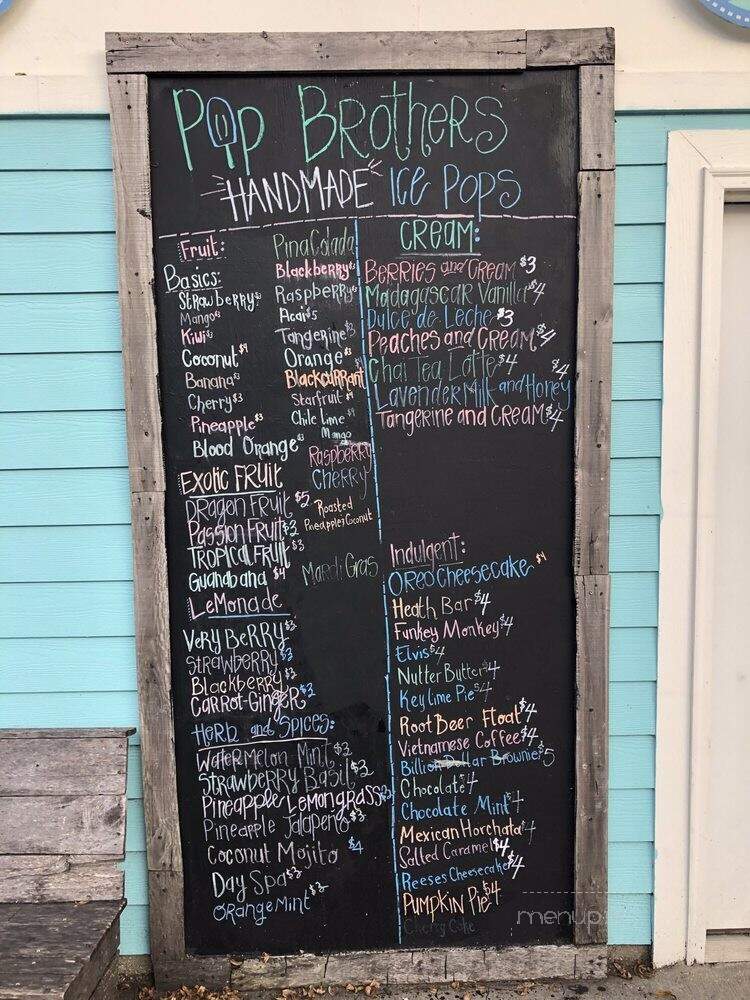 Pop Brothers
HANDMADE Ice Pops
Fruit:
Basics:
Strawberry $3
Mango $3
Kiwi $3
Coconut $4
Banana $3
Cherry $3
Pineapple $3
Blood Orange $3
Pina Colada
Blackberry $3
Raspberry $3
Acai $5
Tangerine $3
Orange $3
Blackcurrant
Starfruit $4
Chile Lime $4
Mango
Raspberry
Cherry
Roasted
Pineapple Coconut
Mardi Gras
Exotic Fruit
Dragon Fruit $5
Passion Fruit $3
Tropical Fruit $3
Guanabana $4
Lemonade
Very Berry $3
Strawberry $3
Blackberry $3
Carrot-Ginger $3
Herb and Spices:
Watermelon Mint $3
Strawberry Basil $3
Pineapple Lemongrass $3
Pineapple Jalapeno $3
Coconut Mojito $4
Day Spa $3
Orange Mint $3
CREAM:
Berries and Cream $3
Madagascar Vanilla $4
Dulce de Leche $3
Peaches and Cream $4
Chai Tea Latte $4
Lavender Milk and Honey $4
Tangerine and Cream $4
Indulgent:
Oreo Cheesecake $4
Heath Bar $4
Funkey Monkey $4
Elvis $4
Nutter Butter $4
Key lime Pie $4
Root Beer Float $4
Vietnamese Coffee $4
Billion Dollar Brownie $5
Chocolate $4
Chocolate Mint $4
Mexican Horchata $4
Salted Caramel $4
Reeses Cheesecake $4
Pumpkin Pie $4
Cherry Coke
menup